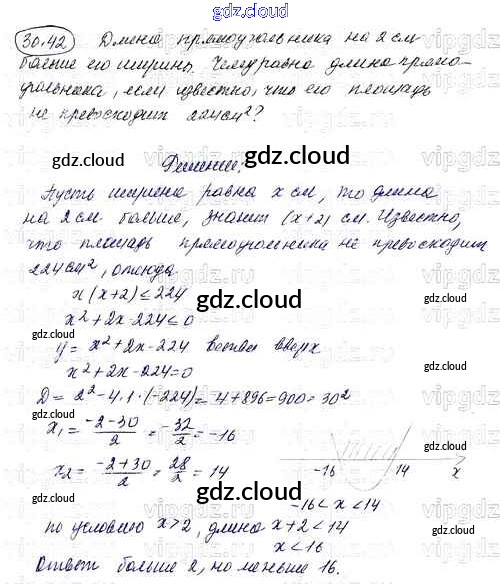 gdz.cloud
30.42 Длина прямоугольника на 2 см
больше его ширины. Чему равна длина прямо-
угольника, если известно, что его площадь
не превосходит 224 см²?
gdz.cloud
gdz.cloud
Решение:
Пусть ширина равна x см, то длина
на 2 см больше, значит (x+2) см. Известно,
что площадь прямоугольника не превосходит
224 см², отсюда
x(x+2) ≤ 224
gdz.cloud
x² + 2x - 224 ≤ 0
gdz.cloud
gdz.cloud
y = x² + 2x - 224 ветви вверх
x² + 2x - 224 = 0
D = 2² - 4·1·(-224) = 4 + 896 = 900 = 30²
x₁ = (-2-30)/2 = -32/2 = -16
gdz.cloud
x₂ = (-2+30)/2 = 28/2 = 14
-16 14 x
gdz.cloud
-16 < x < 14
по условию x > 2, длина x + 2 < 14
x < 16
gdz.cloud
gdz.cloud
Ответ больше 2, но меньше 16.
gdz.cloud